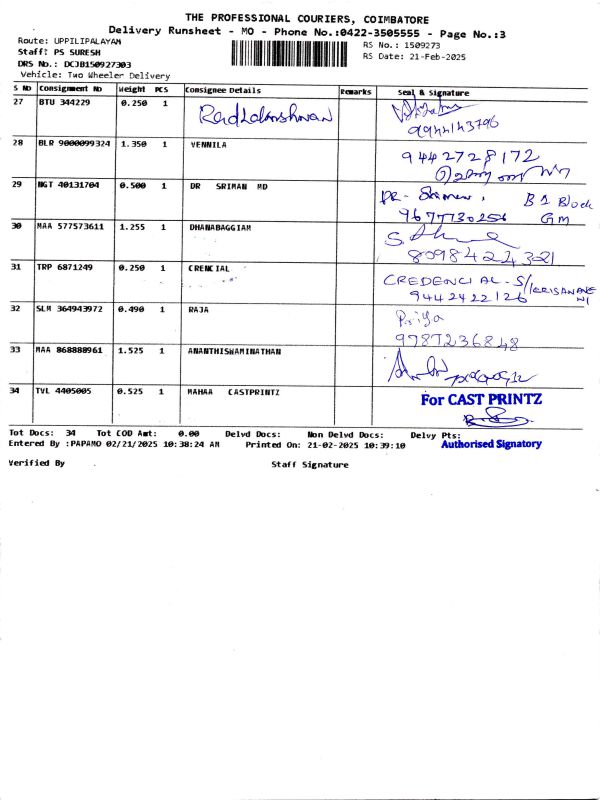 THE PROFESSIONAL COURIERS, COIMBATORE
Delivery Runsheet - MO - Phone No.:0422-3505555 - Page No.:3
Route: UPPILIPALAYAM
RS No.: 1509273
Staff: PS SURESH
RS Date: 21-Feb-2025
DRS No.: DCJB150927303
Vehicle: Two Wheeler Delivery
S No Consignment No Weight PCS Consignee Details Remarks Seal & Signature
27 BTU 344229 0.250 1
9944143796
28 BLR 9000099324 1.350 1 VENNILA 9442728172
29 NGT 40131704 0.500 1 DR SRIMAN MD DR- Sriman, B1 Block
9677730256 GM
30 MAA 577573611 1.255 1 DHANABAGGIAM
8098422321
31 TRP 6871249 0.250 1 CRENCIAL CREDENCIAL - S/
9442422126
32 SLM 364943972 0.490 1 RAJA Priya
9787236848
33 MAA 868888961 1.525 1 ANANTHISWAMINATHAN
34 TVL 4405005 0.525 1 MAHAA CASTPRINTZ For CAST PRINTZ
Authorised Signatory
Tot Docs: 34 Tot COD Amt: 0.00 Delvd Docs: Non Delvd Docs: Delvy Pts:
Entered By :PAPAMO 02/21/2025 10:38:24 AM Printed On: 21-02-2025 10:39:10
Verified By Staff Signature